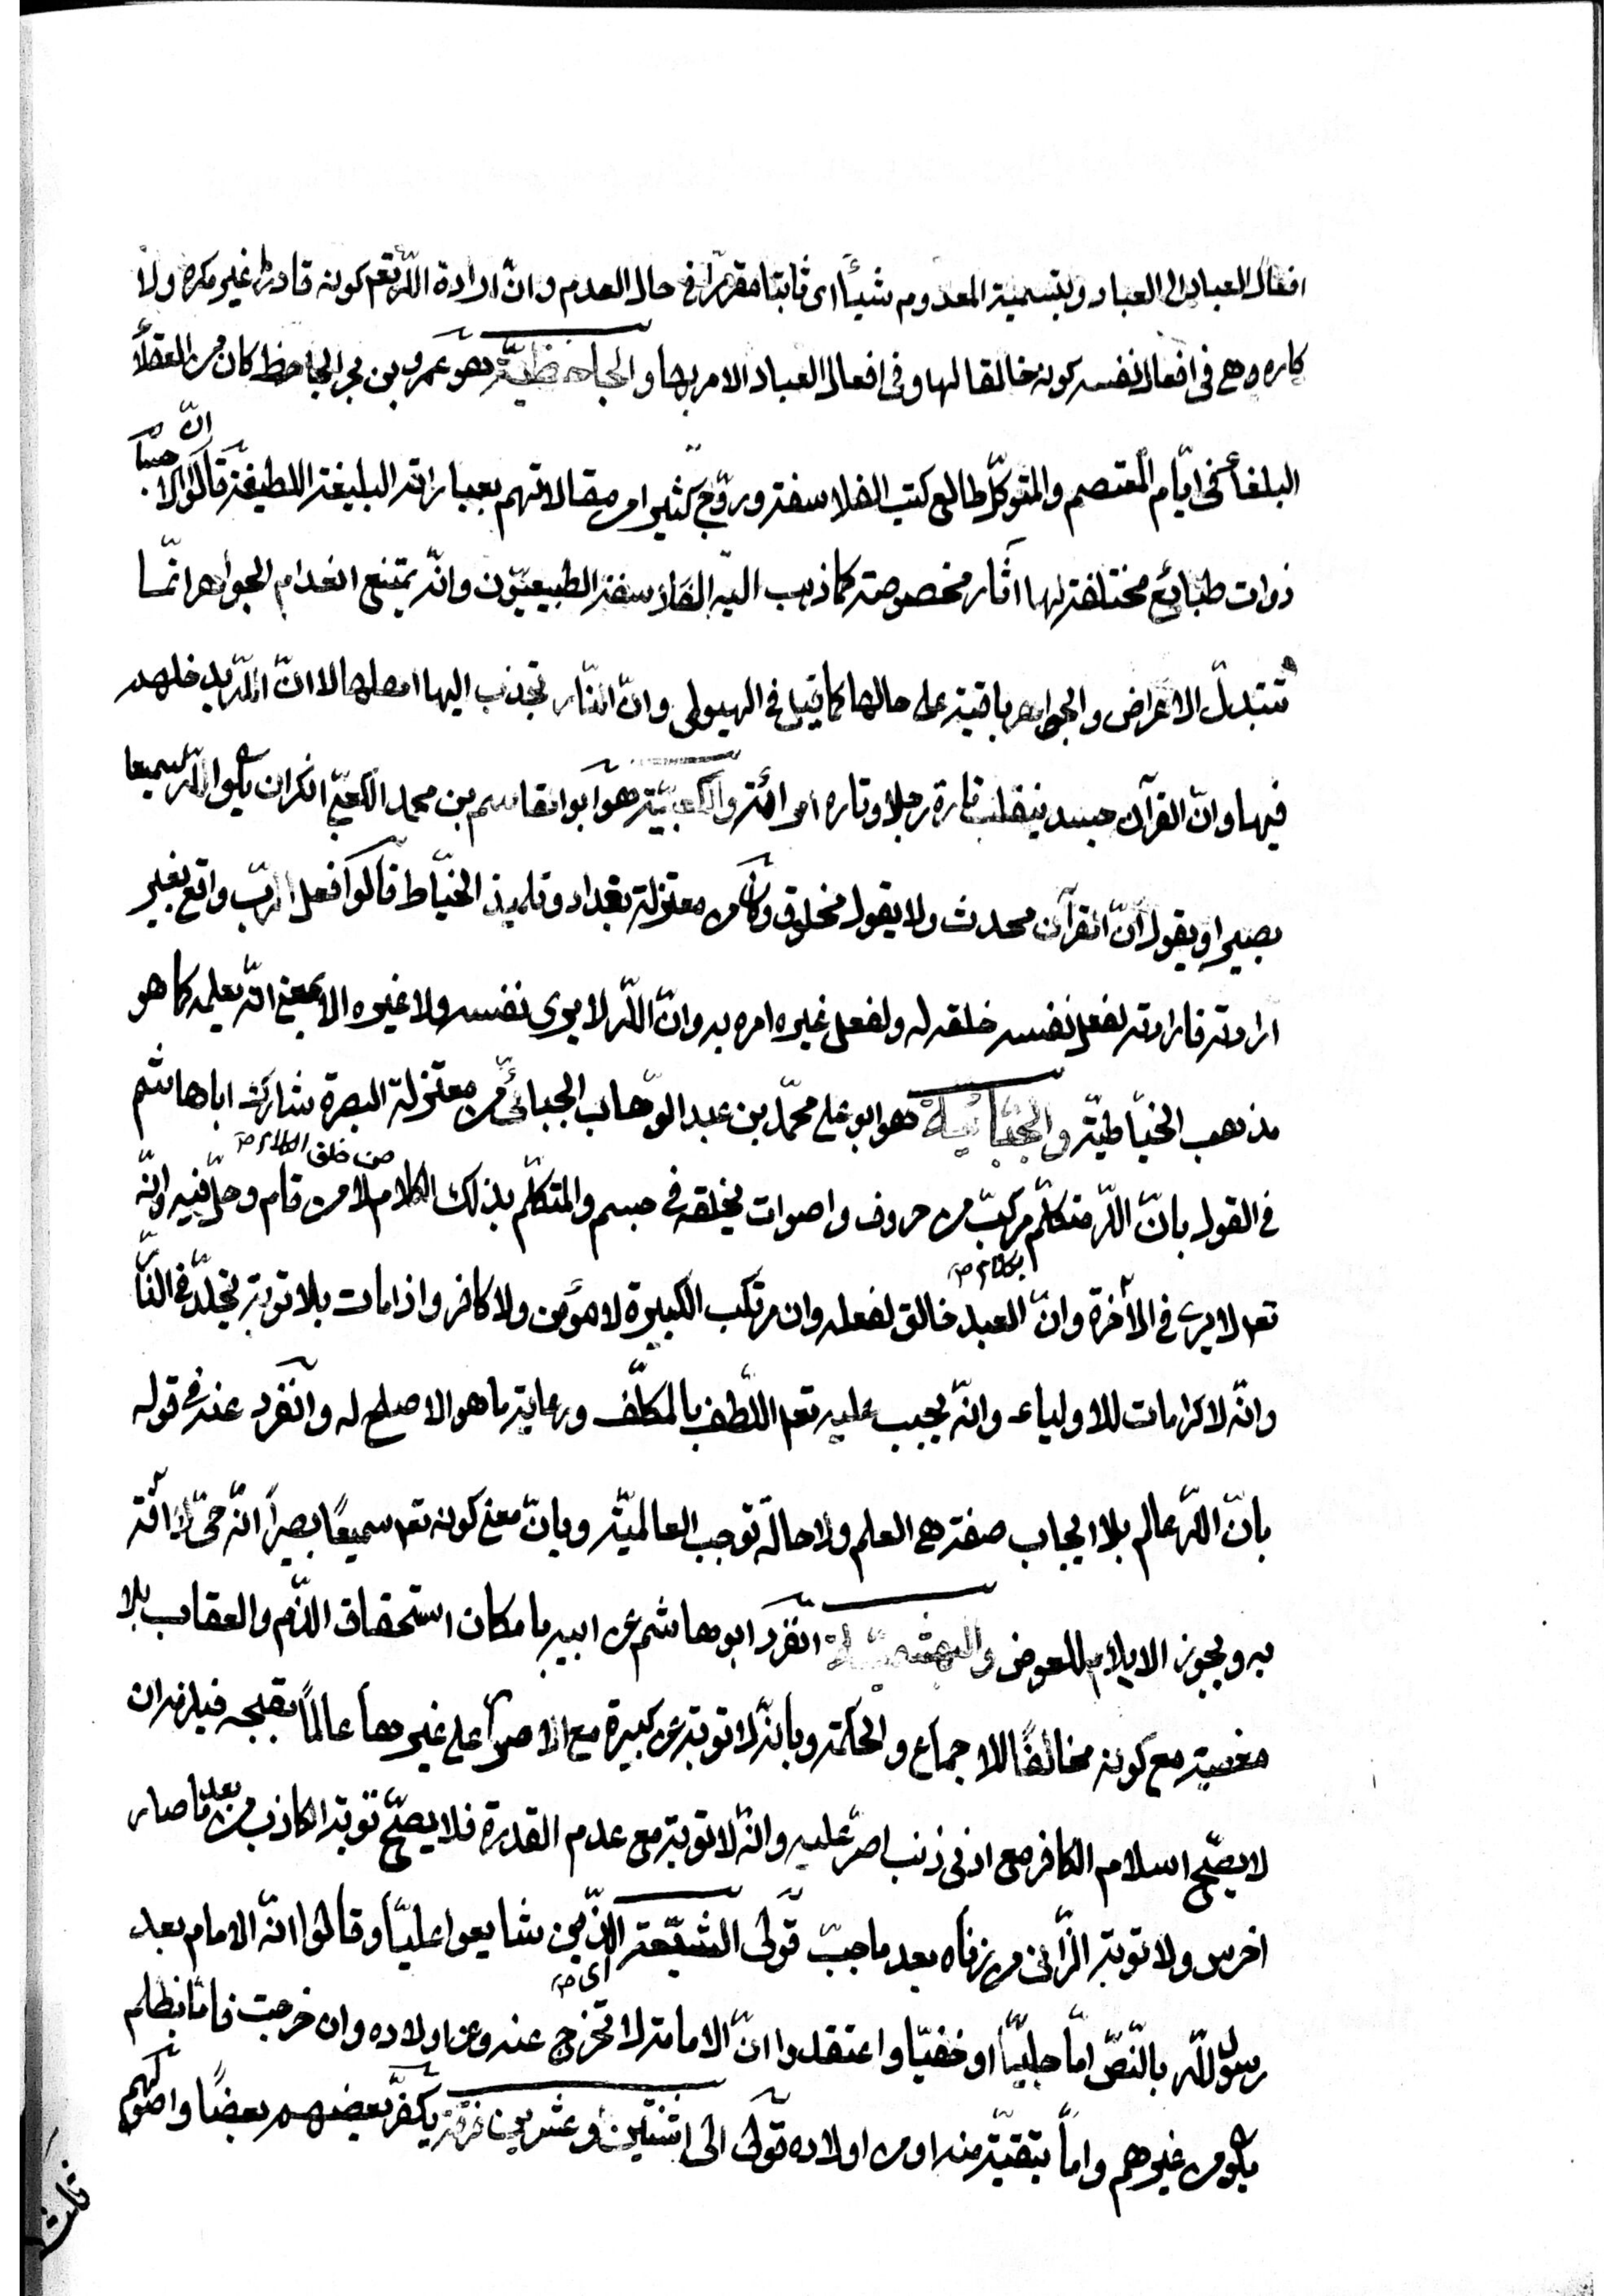 افعال العباد الى العباد وبتسمية المعدوم شيئًا اى ثابتا مقررًا فى حال العدم وانّ ارادة اللّه تعم كونه قادرًا غير مكره ولا
كاره وهى فى افعال نفسه كونه خالقا لها وفى افعال العباد الامر بها والجاحظيّة هو عمرو بن بحر الجاحظ كان من العقلأ
البلغأ فى ايّام المعتصم والمتوكّل طالع كتب الفلاسفة وروّج كثيرا من مقالاتهم بعباراته البليغة اللطيفة قالوا انّ الاجسام
ذوات طبائع مختلفة لها اثار مخصوصة كما ذهب اليه الفلاسفة الطبيعيّون وانّه يمتنع انعدام الجواهر انّما
تتبدلّ الاعراض والجواهر باقية على حالها كما قيل فى الهيولى وانّ النّار تجذب اليها اهلها لا انّ اللّه يدخلهم
فيها وانّ القرآن جسد ينقلب تارة رجلا وتاره امرائة والكعبيّة هو ابو القاسم بن محمد الكعبىّ انكر ان يكون اللّه سميعا
بصيرا ويقول انّ القرآن محدث ولا يقول مخلوق وكان من معتزلة بغداد وتلميذ الخيّاط قالوا فعل الربّ واقع بغير
ارادته فارادته لفعل نفسه خلقه له ولفعل غيره امره به وانّ اللّه لا يرى نفسه ولا غيره الا بمعنى انّه يعلمه كما هو
مذهب الخيّاطيّة والجبّائيّة هو ابو على محمّد بن عبد الوّهاب الجبائىّ من معتزلة البصرة شارك اباهاشم
فى القول بانّ اللّه متكلّم بكلام صح مركّب من حروف واصوات يخلقه فى جسم والمتكلّم بذلك الكلام من خلق الكلام صح لا من قام وحلّ فيه وانّه
تعم لا يرى فى الأخرة وانّ العبد خالق لفعله وان مرتكب الكبيرة لا مؤمن ولا كافر واذا مات بلا توبة يخلّد فى النّار
وانّه لا كرامات للاولياء وانّه يجب عليه تعم اللّطف بالمكلّف ورعاية ما هو الاصلح له وانفرد عنه فى قوله
بانّ اللّه عالم بلا ايجاب صفة هى العلم ولا حالة توجب العالميّة وبانّ معنى كونه تعم سميعًا بصيرًا انّه حىّ لا افة
به ويجوز الايلام للعوض والبهشميّة انفرد ابو هاشم عن ابيه بامكان استحقاق الذّم والعقاب بلا
معصية مع كونه مخالفًا للاجماع والحكمة وبانّه لا توبة عن كبيرة مع الاصرار على غيرها عالمًا بقبحه فيلزم ان
لا يصحّ اسلام الكافر مع ادنى ذنب اصرّ عليه وانّه لا توبة مع عدم القدرة فلا يصحّ توبة الكاذب من بعد ما صار
اخرس ولا توبة الزّانى من زناه بعد ما جبّ قولى الشيّعة اى صح الذّين شايعوا عليّا وقالوا انّه الامام بعد
رسول اللّه بالنّصّ امّا جليّا او خفيّا واعتقدوا انّ الامامة لا تخرج عنه وعن اولاده وان خرجت فامّا بظلم
يكون من غيرهم وامّا بتقيّة منه او من اولاده قولى الى اثنتين وعشرين فرقة يكفّر بعضهم بعضًا واصولهم
ثلث